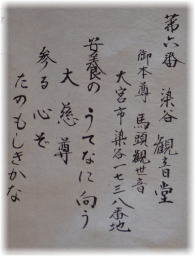 第六番　染谷　観音堂
御本尊　馬頭観世音
大宮市染谷一七三八番地
安養の　うてなに向う
大慈尊
参る心ぞ
たのもしきかな